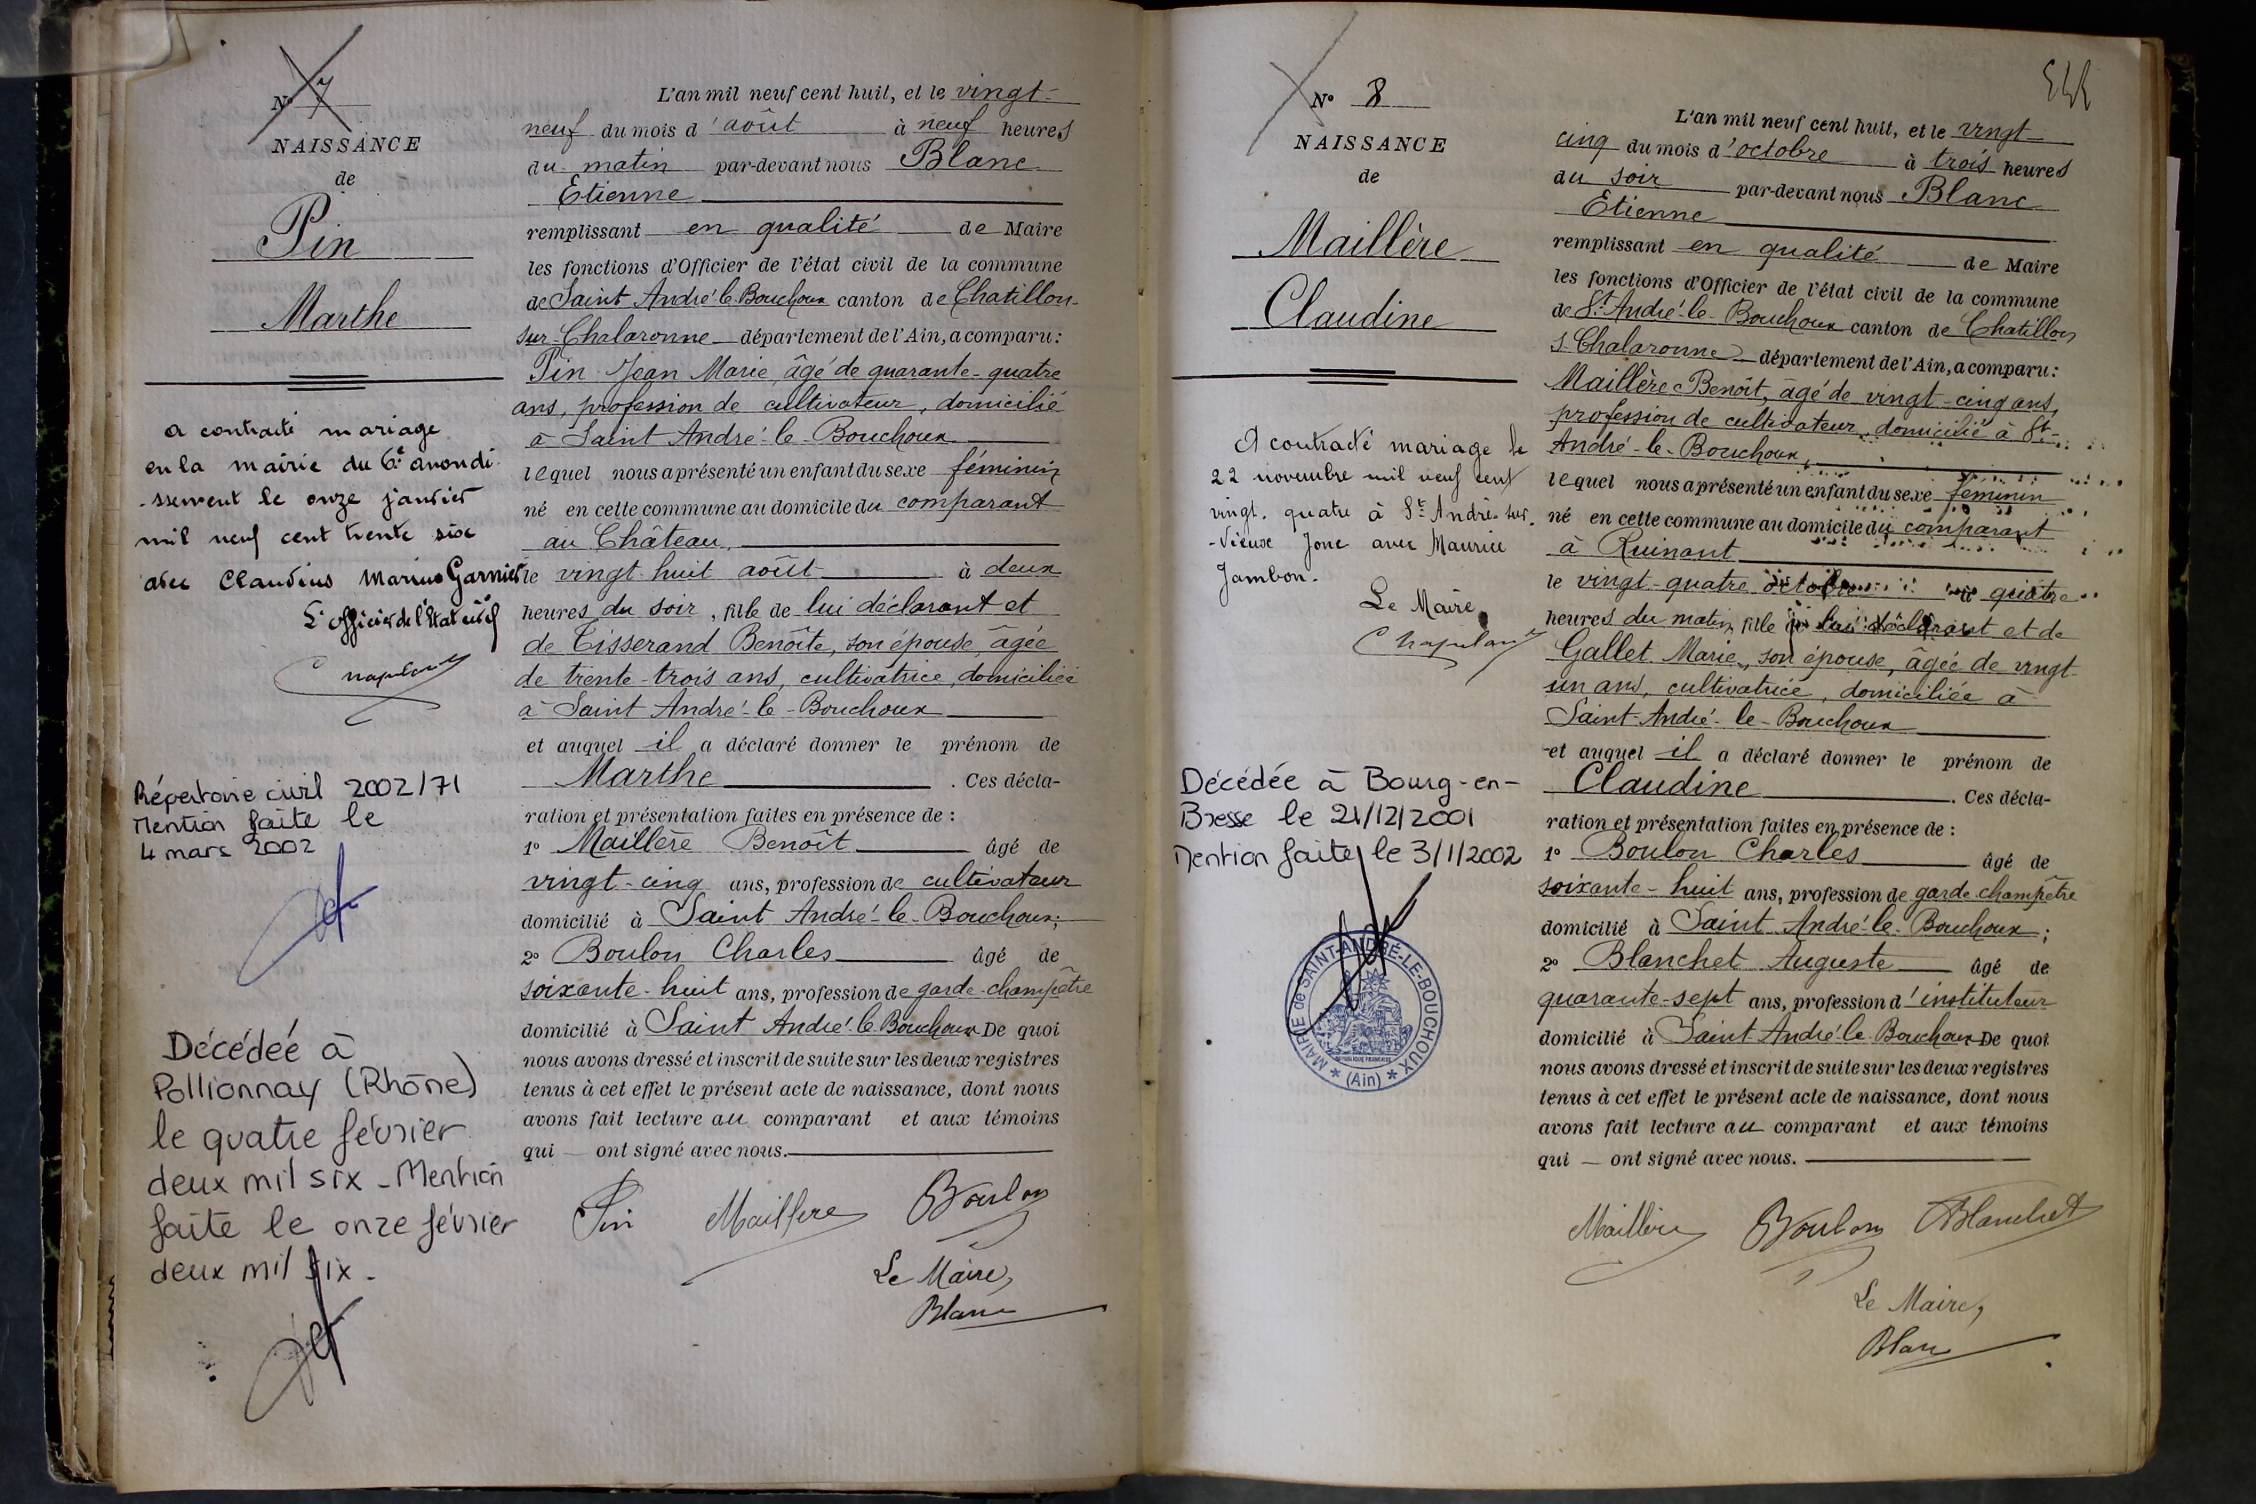 N° 7
NAISSANCE
de
Pin
Marthe
a contracté mariage
en la mairie du 6e arrondi
-ssement le onze janvier
mil neuf cent trente six
avec Claudius Marius Garnier
L'officier de l'Etat civil
Répertoire civil 2002/71
Mention faite le
4 mars 2002
Décédée à
Pollionnay (Rhône)
le quatre février
deux mil six - Mention
faite le onze février
deux mil six -
L'an mil neuf cent huit, et le vingt-
neuf du mois d'août à neuf heures
du matin par-devant nous Blanc
Etienne
remplissant en qualité de Maire
les fonctions d'Officier de l'état civil de la commune
de Saint André-le-Bouchoux canton de Chatillon-
sur-Chalaronne département de l'Ain, a comparu:
Pin Jean Marie, âgé de quarante-quatre
ans, profession de cultivateur, domicilié
à Saint André-le-Bouchoux
lequel nous a présenté un enfant du sexe féminin
né en cette commune au domicile du comparant
au Château,
le vingt-huit août à deux
heures du soir, fille de lui déclarant et
de Tisserand Benoîte, son épouse, âgée
de trente-trois ans, cultivatrice, domiciliée
à Saint André-le-Bouchoux
et auquel il a déclaré donner le prénom de
Marthe . Ces décla-
ration et présentation faites en présence de :
1° Maillère Benoît âgé de
vingt-cinq ans, profession de cultivateur
domicilié à Saint André-le-Bouchoux;
2° Boulon Charles âgé de
soixante-huit ans, profession de garde-champêtre
domicilié à Saint André-le-Bouchoux De quoi
nous avons dressé et inscrit de suite sur les deux registres
tenus à cet effet le présent acte de naissance, dont nous
avons fait lecture au comparant et aux témoins
qui — ont signé avec nous.
Pin Maillère Boulon
Le Maire,
Blanc
N° 8
NAISSANCE
de
Maillère
Claudine
A contracté mariage le
22 novembre mil neuf cent
vingt-quatre à St André-sur-
-Vieux Jonc avec Maurice
Jambon.
Le Maire
Décédée à Bourg-en-
Bresse le 21/12/2001
Mention faite le 3/1/2002
MAIRIE de SAINT-ANDRÉ-LE-BOUCHOUX
RÉPUBLIQUE FRANÇAISE
* (Ain) *
L'an mil neuf cent huit, et le vingt
cinq du mois d'octobre à trois heures
du soir par-devant nous Blanc
Etienne
remplissant en qualité de Maire
les fonctions d'Officier de l'état civil de la commune
de St André-le-Bouchoux canton de Chatillon
s-Chalaronne département de l'Ain, a comparu:
Maillère Benoît, âgé de vingt-cinq ans,
profession de cultivateur, domicilié à St-
André-le-Bouchoux,
lequel nous a présenté un enfant du sexe féminin
né en cette commune au domicile du comparant
à Ruinant
le vingt-quatre octobre à quatre
heures du matin, fille de lui déclarant et de
Gallet Marie, son épouse, âgée de vingt
un ans, cultivatrice, domiciliée à
Saint-André-le-Bouchoux
et auquel il a déclaré donner le prénom de
Claudine . Ces décla-
ration et présentation faites en présence de :
1° Boulon Charles âgé de
soixante-huit ans, profession de garde champêtre
domicilié à Saint André-le-Bouchoux;
2° Blanchet Auguste âgé de
quarante-sept ans, profession d'instituteur
domicilié à Saint André-le-Bouchoux De quoi
nous avons dressé et inscrit de suite sur les deux registres
tenus à cet effet le présent acte de naissance, dont nous
avons fait lecture au comparant et aux témoins
qui — ont signé avec nous.
Maillère Boulon Blanchet
Le Maire,
Blanc